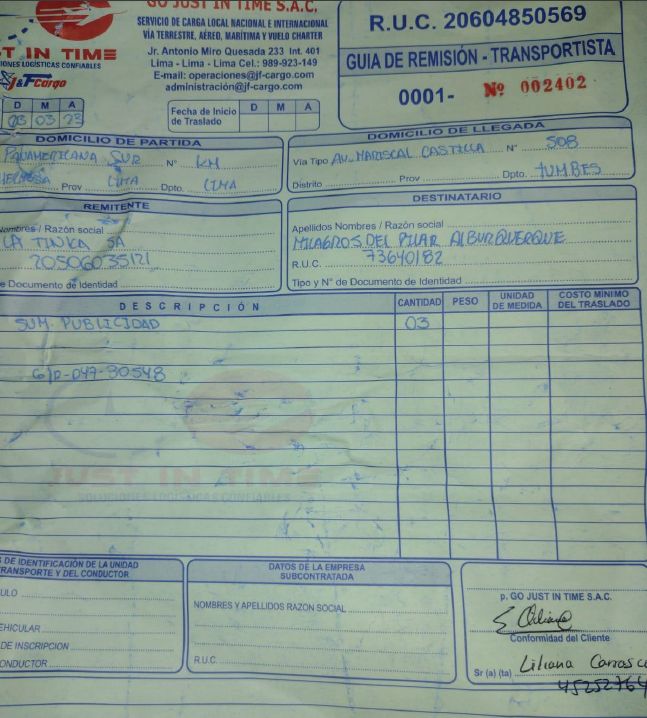 GO JUST IN TIME S.A.C.
SERVICIO DE CARGA LOCAL NACIONAL E INTERNACIONAL
VÍA TERRESTRE, AÉREO, MARÍTIMA Y VUELO CHARTER
Jr. Antonio Miro Quesada 233 Int. 401
Lima - Lima - Lima Cel.: 989-923-149
E-mail: operaciones@jf-cargo.com
administración@jf-cargo.com
ST IN TIME
IONES LOGÍSTICAS CONFIABLES
J&F Cargo
R.U.C. 20604850569
GUIA DE REMISIÓN - TRANSPORTISTA
0001- Nº 002402
D M A
03 03 23
Fecha de Inicio de Traslado D M A
DOMICILIO DE PARTIDA
PANAMERICANA SUR Nº KM
Prov LIMA Dpto. LIMA
DOMICILIO DE LLEGADA
Via Tipo AV. MARISCAL CASTILLA Nº 508
Distrito Prov Dpto. TUMBES
REMITENTE
Nombres / Razón social
LA TINKA SA
20506035121
e Documento de Identidad
DESTINATARIO
Apellidos Nombres / Razón social
MILAGROS DEL PILAR ALBURQUERQUE
R.U.C. 73640182
Tipo y N° de Documento de Identidad
DESCRIPCIÓN CANTIDAD PESO UNIDAD DE MEDIDA COSTO MÍNIMO DEL TRASLADO
SUM. PUBLICIDAD 03
G/R-049-30548
JUST IN TIME
SOLUCIONES LOGÍSTICAS CONFIABLES
S DE IDENTIFICACIÓN DE LA UNIDAD
TRANSPORTE Y DEL CONDUCTOR
ULO
EHICULAR
DE INSCRIPCION
ONDUCTOR
DATOS DE LA EMPRESA
SUBCONTRATADA
NOMBRES Y APELLIDOS RAZON SOCIAL
R.U.C.
p. GO JUST IN TIME S.A.C.
Conformidad del Cliente
Sr (a) (ta) Liliana Carrasco
45252764